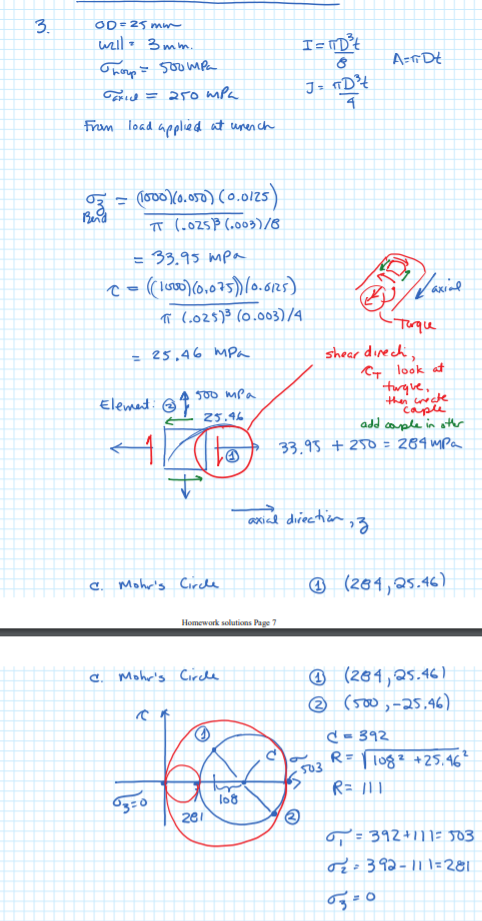 3. OD = 25 mm
wall = 3 mm.
σhoop = 500 MPa
σaxial = 250 MPa
I = πD³t/8
A = πDt
J = πD³t/4
From load applied at wrench
σz Bend = (1000)(0.050)(0.0125) / π(.025)³(.003)/8
= 33.95 MPa
τ = ((1000)(0.075))(0.0125) / π(.025)³(0.003)/4
= 25.46 MPa
axial
Torque
shear direch,
τT look at
torque,
then create
couple
add couple in other
Element: ② 500 MPa
25.46
①
33.95 + 250 = 284 MPa
axial direction, z
a. Mohr's Circle ① (284, 25.46)
Homework solutions Page 7
a. Mohr's Circle ① (284, 25.46)
② (500, -25.46)
τ
①
C
σ
503
108
σ3=0
281
②
C = 392
R = √108² + 25.46²
R = 111
σ1 = 392+111 = 503
σ2 = 392-111 = 281
σ3 = 0